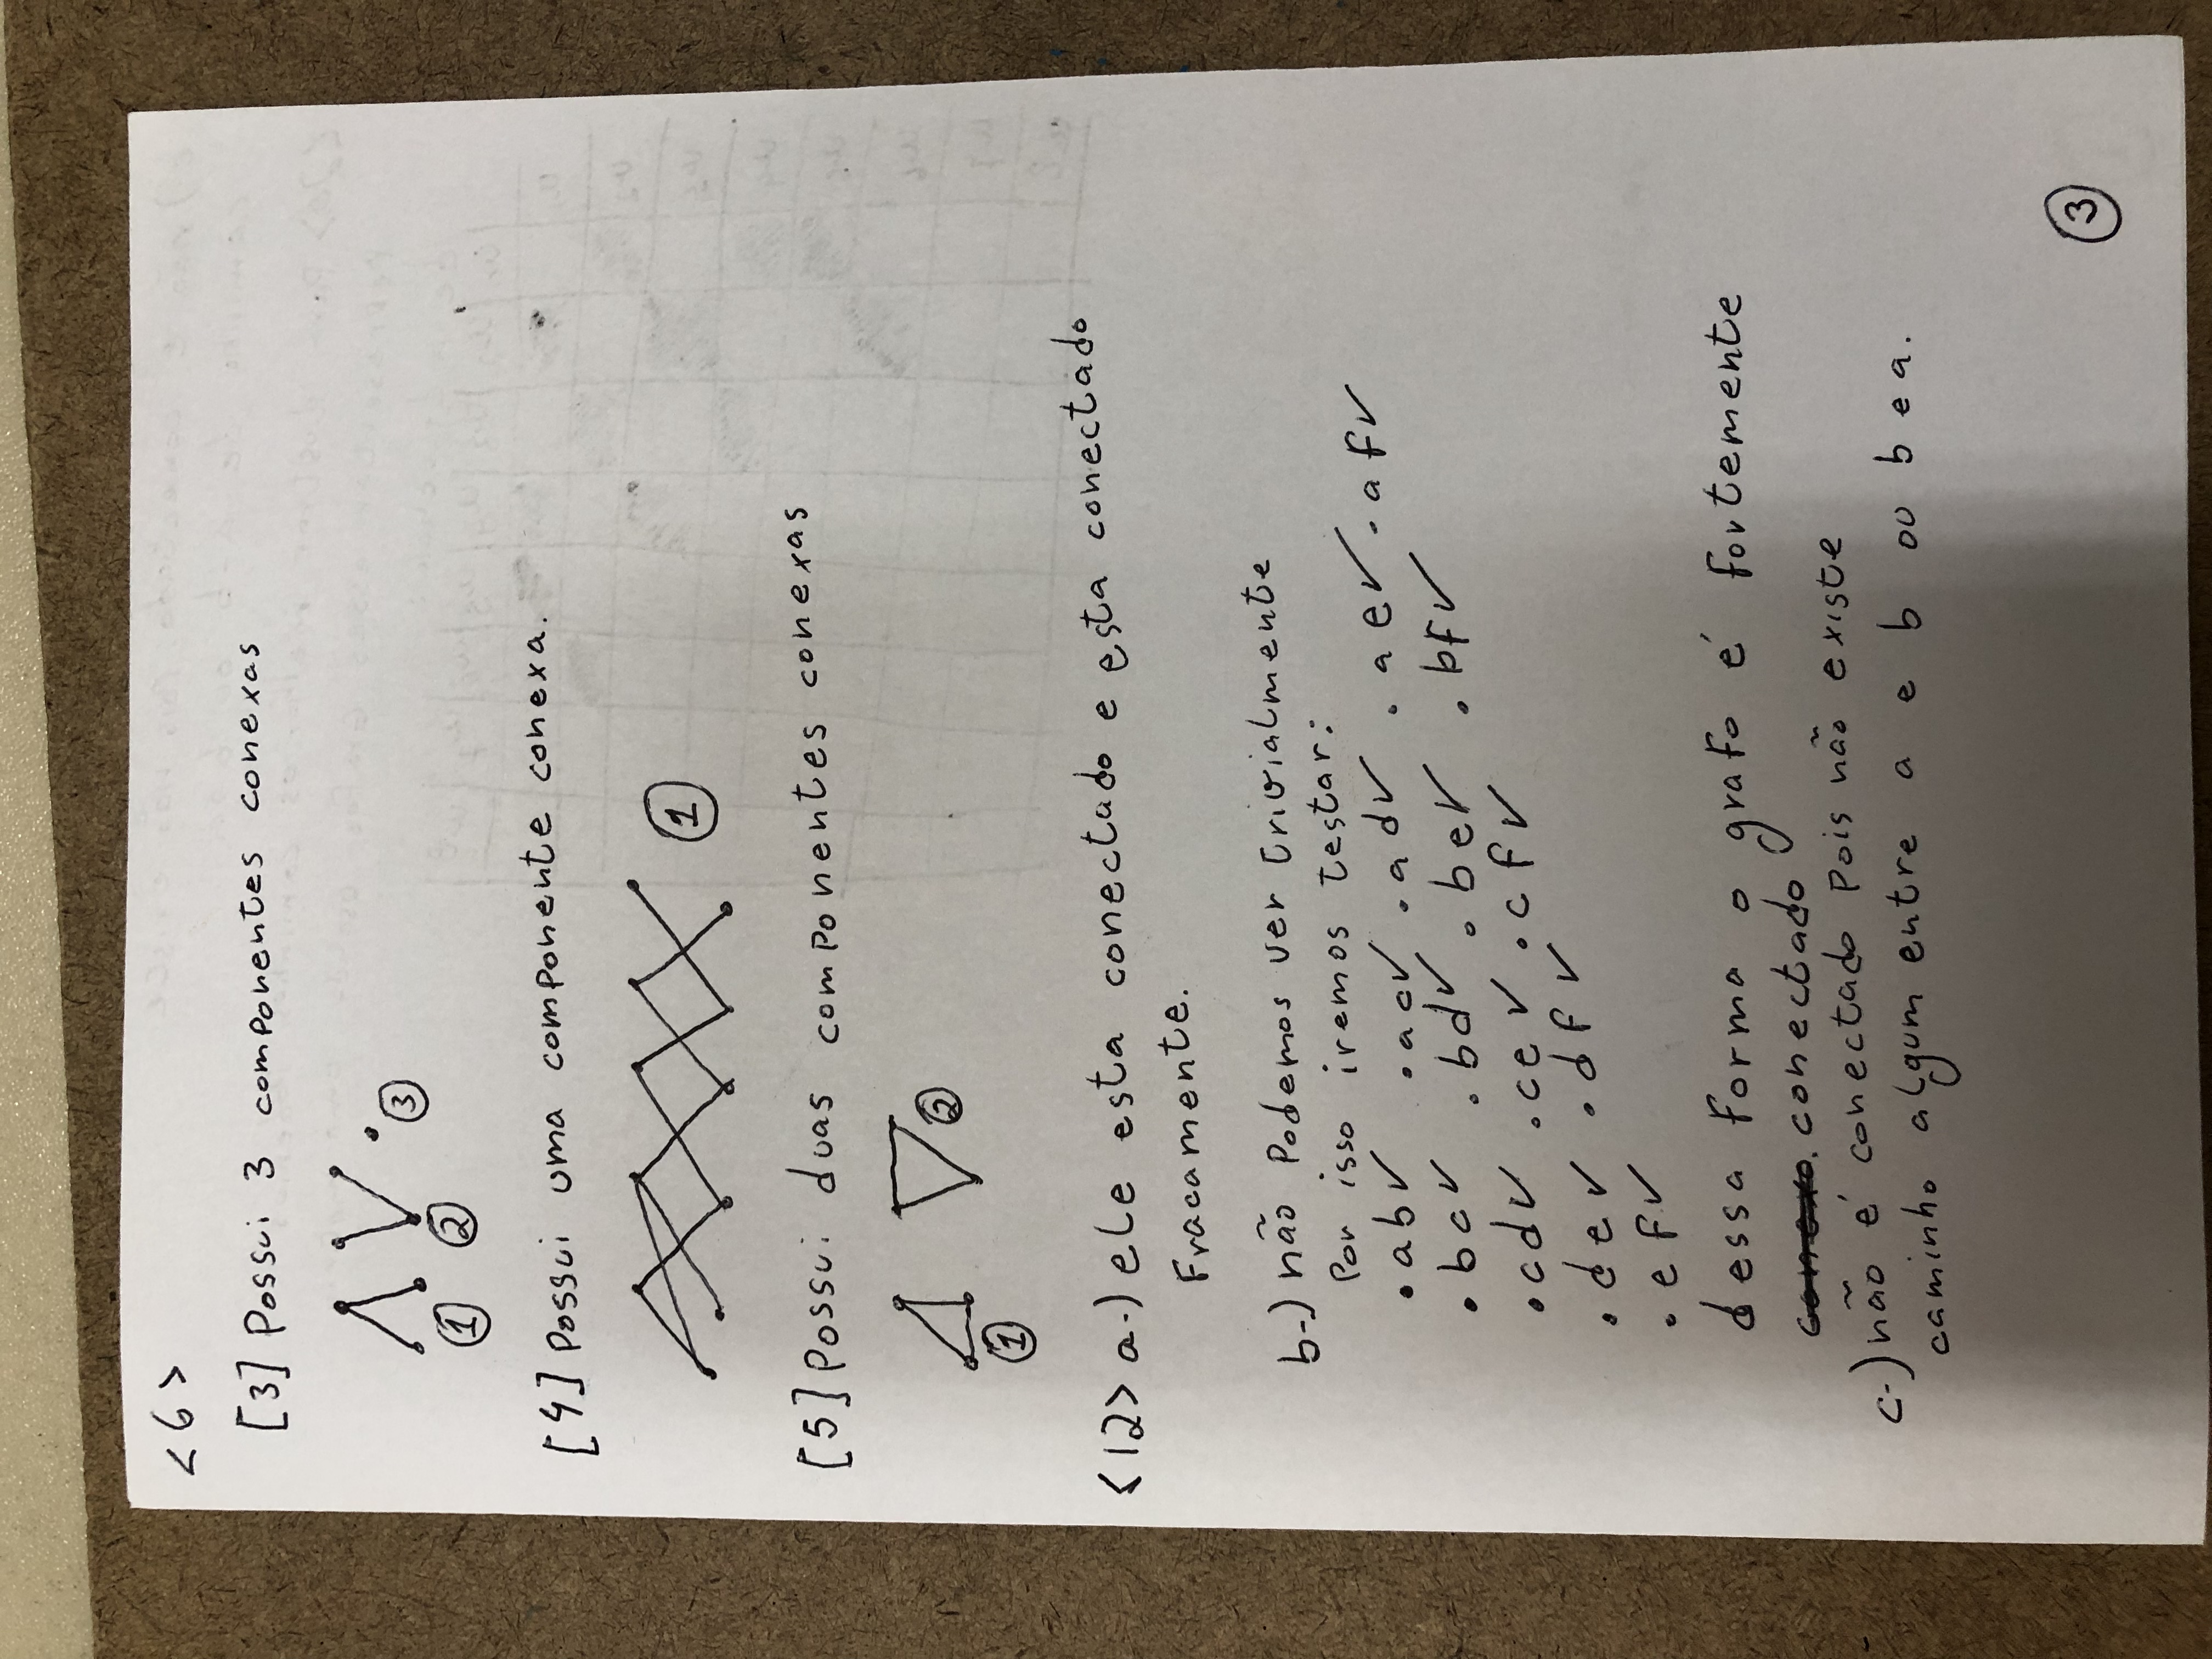 <6>
[3] Possui 3 componentes conexas
① ② ③
[4] Possui uma componente conexa.
①
[5] Possui duas componentes conexas
① ②
<12> a-) ele esta conectado e esta conectado
Fracamente.
b-) não Podemos ver trivialmente
Por isso iremos testar:
• ab✓ • ac✓ • ad✓ • ae✓ • af✓
• bc✓ • bd✓ • be✓ • bf✓
• cd✓ • ce✓ • cf✓
• de✓ • df✓
• ef✓
dessa forma o grafo é fortemente
conexo. conectado
c-) não é conectado Pois não existe
caminho algum entre a e b ou b e a.
③